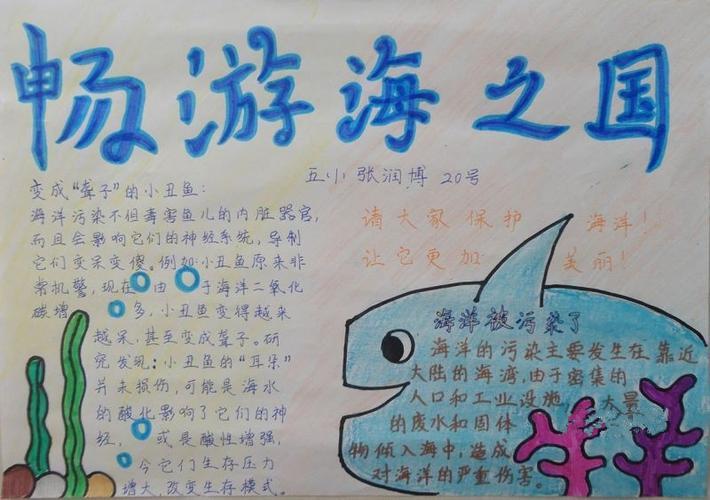 畅游海之国
五小 张润博 20号
变成“聋子”的小丑鱼：
海洋污染不但毒害鱼儿的内脏器官，
而且会影响它们的神经系统，导制
它们变呆变傻。例如：小丑鱼原来非
常机警，现在由于海洋二氧化
碳增多，小丑鱼变得越来
越呆，甚至变成聋子。研
究发现：小丑鱼的“耳朵”
并未损伤，可能是海水
的酸化影响了它们的神
经，或是酸性增强，
令它们生存压力
增大，改变生存模式。
请大家保护海洋！
让它更加美丽！
海洋被污染了
海洋的污染主要发生在靠近
大陆的海湾，由于密集的
人口和工业设施，大量
的废水和固体
物倾入海中，造成
对海洋的严重伤害。